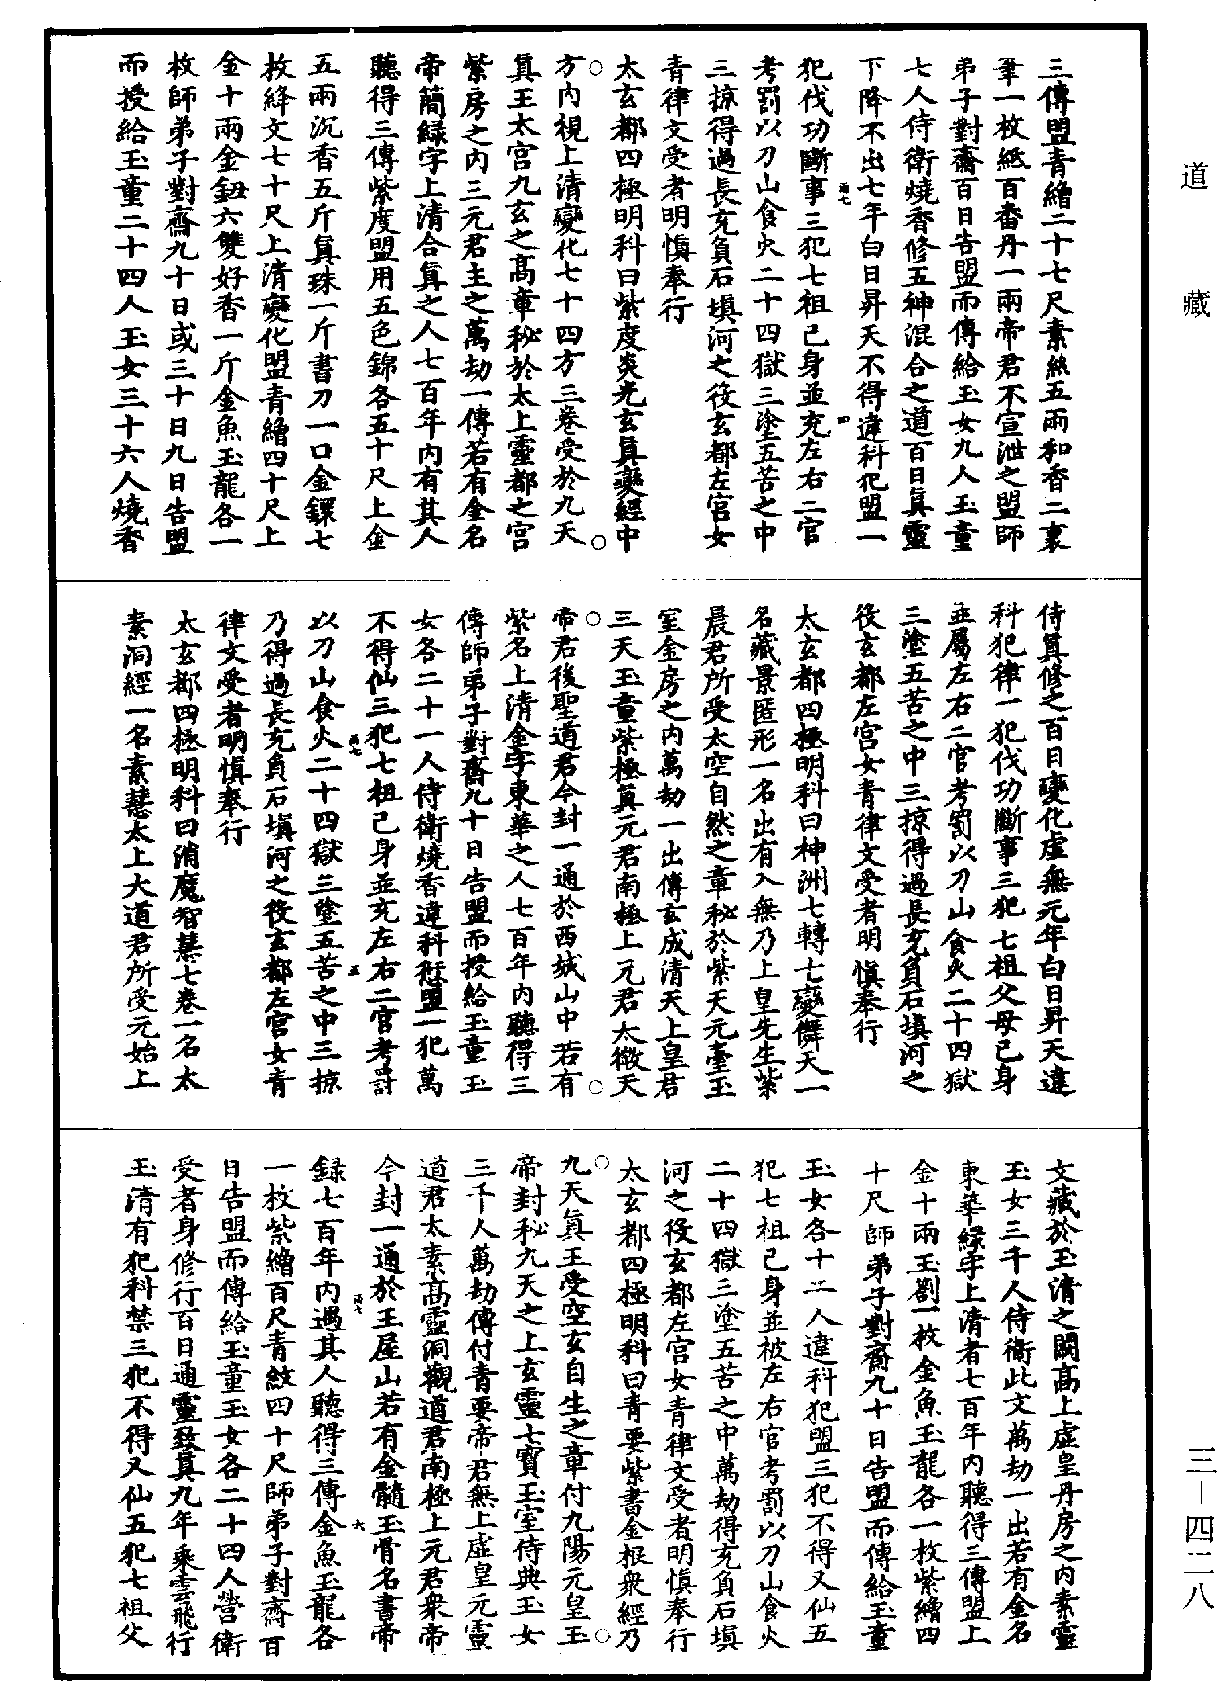 三傳盟青繒二十七尺素絲五兩和香二裹
筆一枚紙百番丹一兩帝君不宣泄之盟師
弟子對齋百日告盟而傳給玉女九人玉童
七人侍衛燒香修五神混合之道百日真靈
下降不出七年白日昇天不得違科犯盟一
犯伐功斷事三犯七祖己身並充左右二官
考罰以刀山食火二十四獄三塗五苦之中
三掠得過長充負石填河之役玄都左宮女
青律文受者明慎奉行
太玄都四極明科曰紫度炎光玄真變經中
方內視上清變化七十四方三卷受於九天
真王太宮九玄之高章秘於太上靈都之宮
紫房之內三元君主之萬劫一傳若有金名
帝簡綠字上清合真之人七百年內有其人
聽得三傳紫度盟用五色錦各五十尺上金
五兩沉香五斤真珠一斤書刀一口金鐶七
枚絳文七十尺上清變化盟青繒四十尺上
金十兩金鈕六雙好香一斤金魚玉龍各一
枚師弟子對齋九十日或三十日九日告盟
而授給玉童二十四人玉女三十六人燒香
侍真修之百日變化虛無元年白日昇天違
科犯律一犯伐功斷事三犯七祖父母己身
並屬左右二官考罰以刀山食火二十四獄
三塗五苦之中三掠得過長充負石填河之
役玄都左宮女青律文受者明慎奉行
太玄都四極明科曰神洲七轉七變儛天一
名藏景匿形一名出有入無乃上皇先生紫
晨君所受太空自然之章秘於紫天元臺玉
室金房之內萬劫一出傳玄成清天上皇君
三天玉童紫極真元君南極上元君太微天
帝君後聖道君今封一通於西城山中若有
紫名上清金字東華之人七百年內聽得三
傳師弟子對齋九十日告盟而授給玉童玉
女各二十一人侍衛燒香違科愆盟一犯萬
不得仙三犯七祖己身並充左右二官考罰
以刀山食火二十四獄三塗五苦之中三掠
乃得過長充負石填河之役玄都左宮女青
律文受者明慎奉行
太玄都四極明科曰消魔智慧七卷一名太
素洞經一名素慧太上大道君所受元始上
文藏於玉清之闕高上虛皇丹房之內素靈
玉女三千人侍衛此文萬劫一出若有金名
東華綠字上清者七百年內聽得三傳盟上
金十兩玉劄一枚金魚玉龍各一枚紫繒四
十尺師弟子對齋九十日告盟而傳給玉童
玉女各十二人違科犯盟三犯不得又仙五
犯七祖己身並被左右官考罰以刀山食火
二十四獄三塗五苦之中萬劫得充負石填
河之役玄都左宮女青律文受者明慎奉行
太玄都四極明科曰青要紫書金根眾經乃
九天真王受空玄自生之章付九陽元皇玉
帝封秘九天之上玄靈七寶玉室侍典玉女
三千人萬劫傳付青要帝君無上虛皇元靈
道君太素高靈洞觀道君南極上元君眾帝
今封一通於王屋山若有金髓玉骨名書帝
錄七百年內過其人聽得三傳金魚玉龍各
一枚紫繒百尺青紋四十尺師弟子對齋百
日告盟而傳給玉童玉女各二十四人營衛
受者身修行百日通靈致真九年乘雲飛行
玉清有犯科禁三犯不得又仙五犯七祖父
道藏
三-四二八